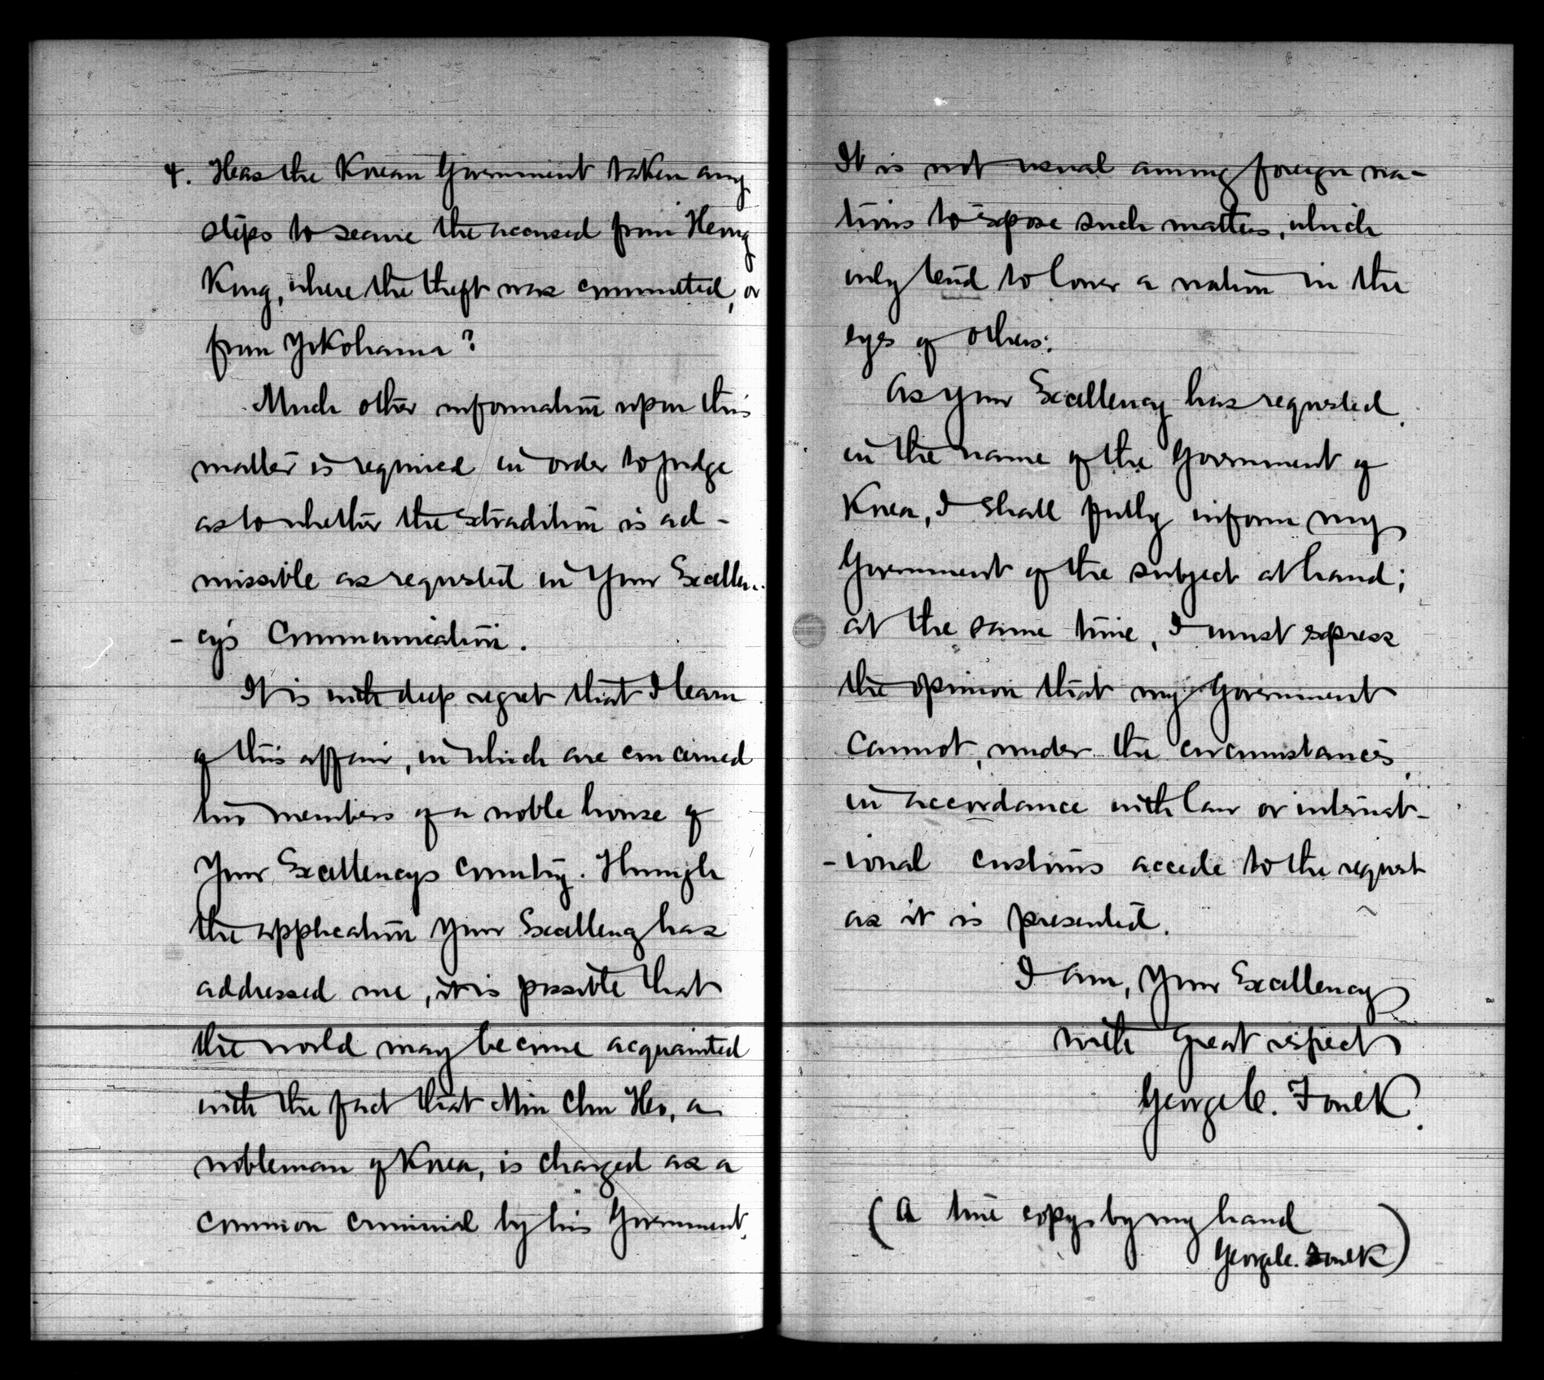 4. Has the Korean Government taken any
steps to secure the accused from Hong
Kong, where the theft was committed, or
from Yokohama?
Much other information upon this
matter is required in order to judge
as to whether the extradition is ad-
missible as requested in Your Excellen-
-cy's Communication.
It is with deep regret that I learn
of this affair, in which are concerned
two members of a noble house of
Your Excellencys country. Through
the application Your Excellency has
addressed me, it is possible that
the world may become acquainted
with the fact that Min Chu Ho, a
nobleman of Korea, is charged as a
common criminal by his Government.
It is not usual among foreign na-
tions to expose such matters, which
only tend to lower a nation in the
eyes of others.
As Your Excellency has requested
in the name of the Government of
Korea, I shall fully inform my
Government of the subject at hand;
at the same time, I must express
the opinion that my Government
cannot, under the circumstances,
in accordance with law or internat-
-ional customs accede to the request
as it is presented.
I am, Your Excellency
with great respect
George C. Foulk.
(A true copy by my hand
George C. Foulk)